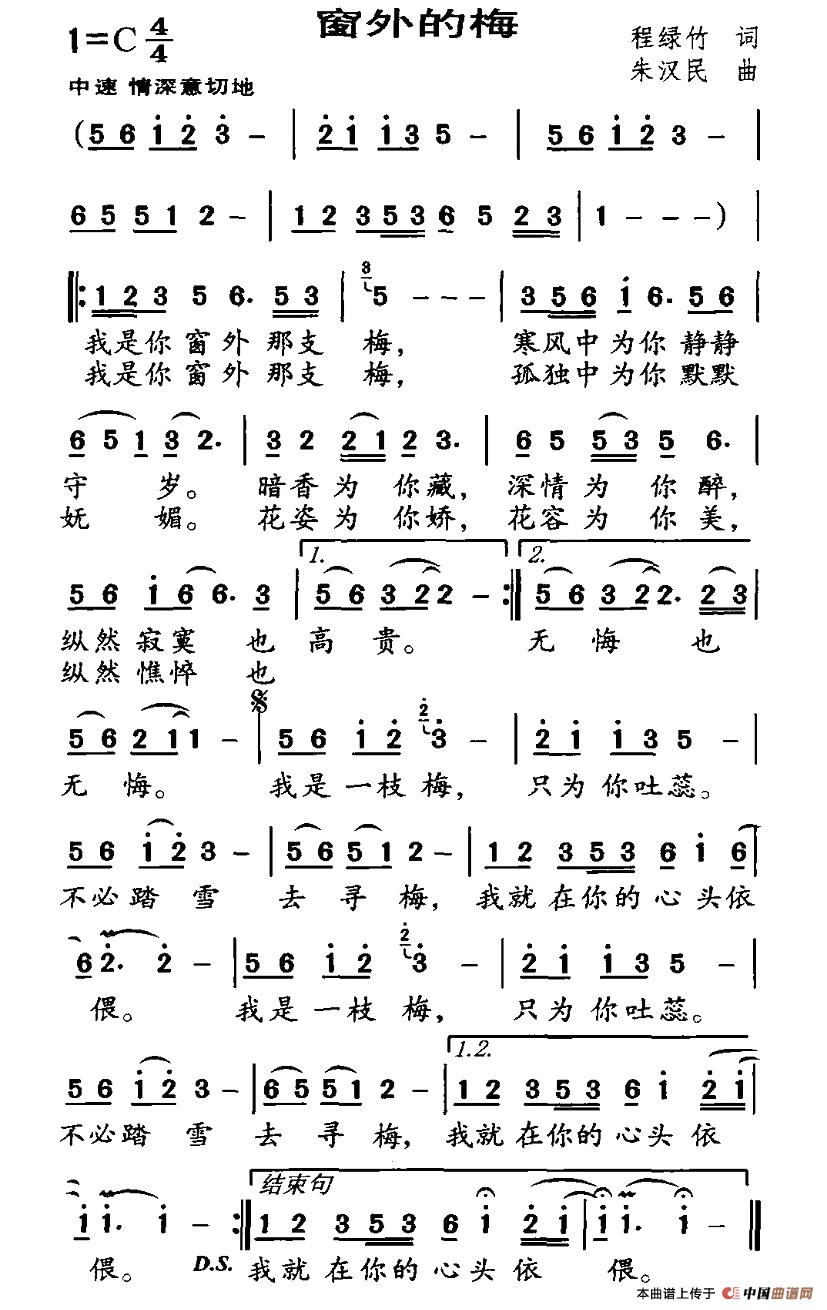 窗外的梅
1=C 4/4
程绿竹 词
朱汉民 曲
中速 情深意切地
(5 6 1̇ 2̇ 3̇ – | 2̇ 1̇ 1̇ 3 5 – | 5 6 1̇ 2̇ 3 – |
6 5 5 1 2 – | 1 2 3 5 3 6 5 2 3 | 1 – – –)
‖: 1 2 3 5 6. 5 3 | 3 5 – – – | 3 5 6 1̇ 6. 5 6
我是你 窗 外 那支 梅, 寒风中 为你 静静
我是你 窗 外 那支 梅, 孤独中 为你 默默
6 5 1 3 2. | 3 2 2 1 2 3. | 6 5 5 3 5 6. |
守 岁。 暗香 为 你藏, 深情 为 你 醉,
妩 媚。 花姿 为 你娇, 花容 为 你 美,
1. 2.
5 6 1̇ 6 6. 3 | 5 6 3 2 2 – :‖ 5 6 3 2 2. 2 3 |
纵然 寂寞 也 高 贵。 无 悔 也
纵然 憔悴 也
5 6 2 1 1 – | 5 6 1̇ 2̇ 2̇ 3̇ – | 2̇ 1̇ 1̇ 3 5 – |
无 悔。 我是 一枝 梅, 只为 你吐蕊。
5 6 1̇ 2̇ 3 – | 5 6 5 1 2 – | 1 2 3 5 3 6 1̇ 6 |
不必踏 雪 去 寻 梅, 我就 在你的 心 头依
6 2̇. 2̇ – | 5 6 1̇ 2̇ 2̇ 3̇ – | 2̇ 1̇ 1̇ 3 5 – |
偎。 我是 一枝 梅, 只为 你吐蕊。
1.2.
5 6 1̇ 2̇ 3 – | 6 5 5 1 2 – | 1 2 3 5 3 6 1̇ 2̇ 1̇ |
不必踏 雪 去 寻 梅, 我就 在你的 心头 依
结束句
1̇ 1̇. 1̇ – :‖ 1 2 3 5 3 6 1̇ 2̇ 1̇ | 1̇ 1̇. 1̇ – ‖
偎。 D.S. 我就 在你的 心头 依 偎。
本曲谱上传于 中国曲谱网